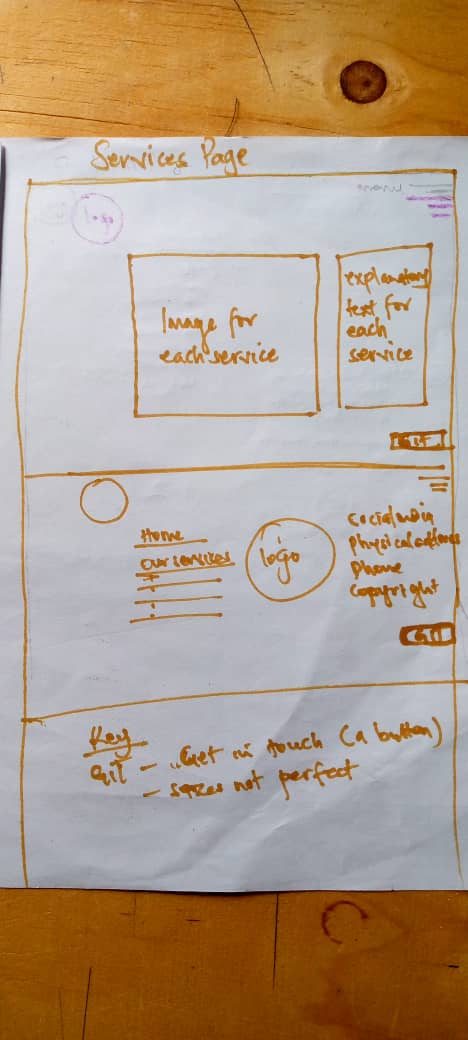 Services Page
logo
menu
Image for
each service
explanatory
text for
each
service
GIT
Home
our services
logo
Social media
Physical address
Phone
Copyright
GIT
Key
GIT - Get in touch (a button)
- sizes not perfect